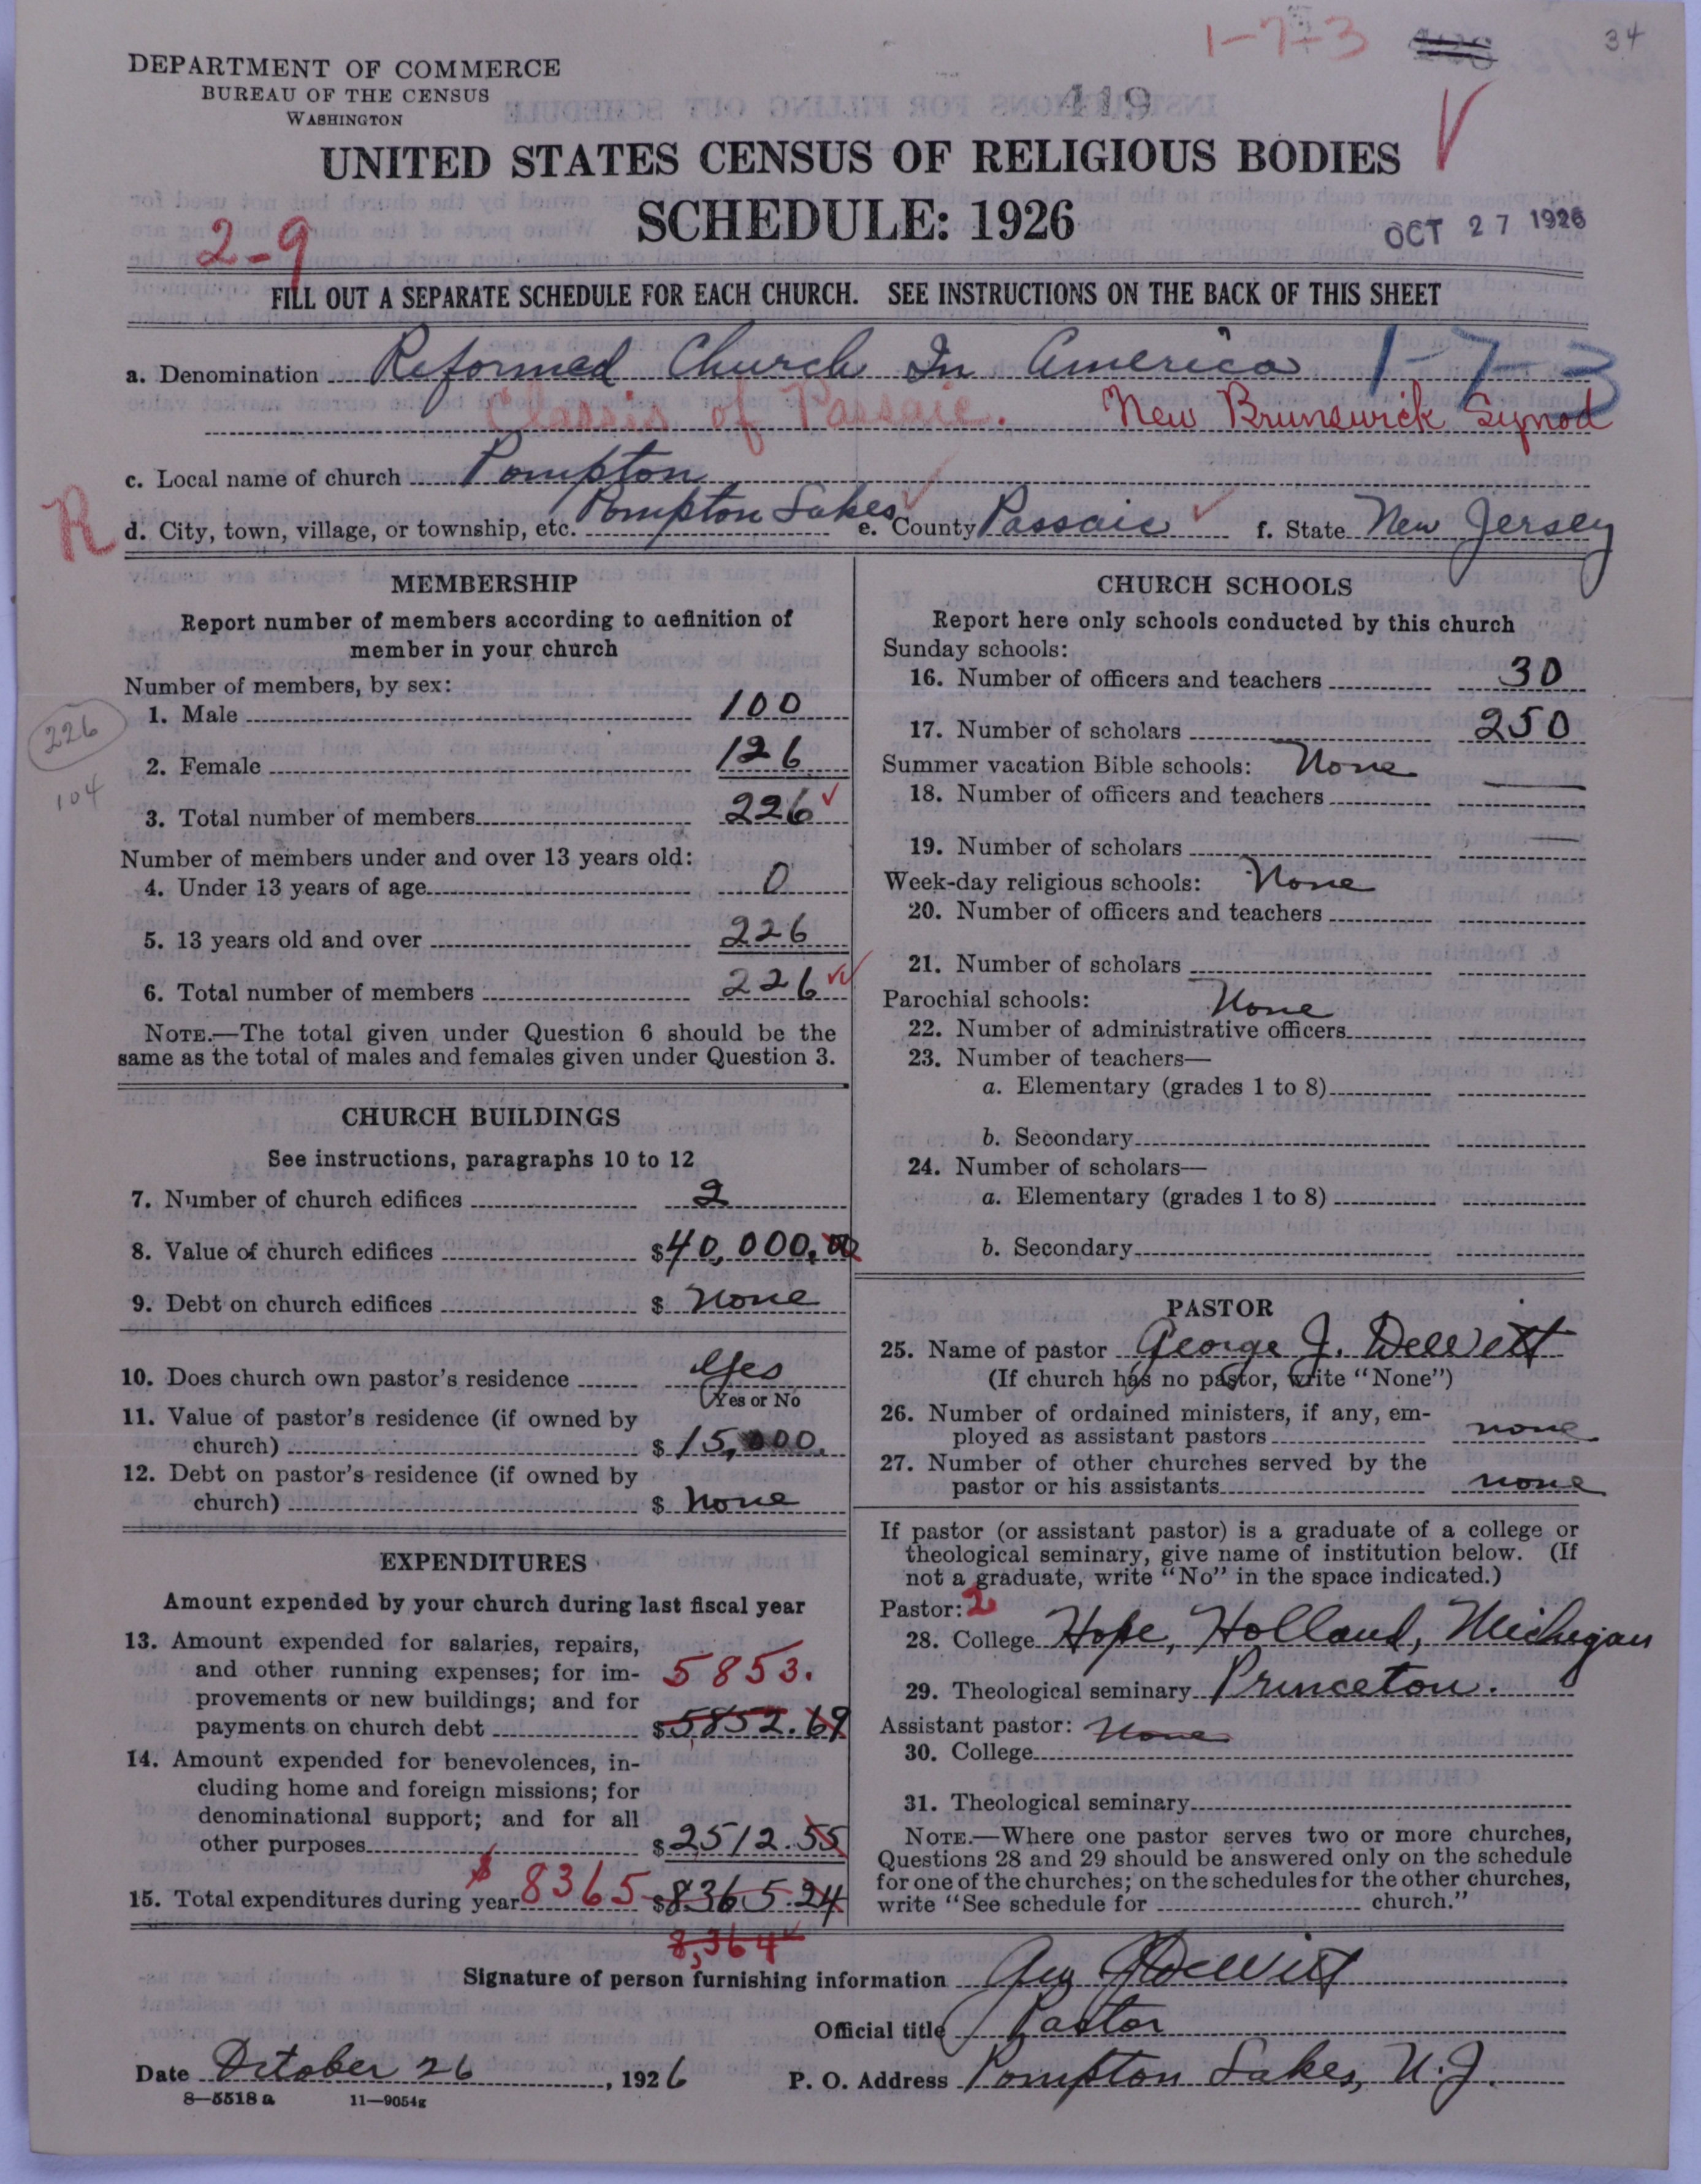 1-7-3
34
DEPARTMENT OF COMMERCE
BUREAU OF THE CENSUS
WASHINGTON
419
UNITED STATES CENSUS OF RELIGIOUS BODIES
SCHEDULE: 1926
OCT 27 1926
2-9
FILL OUT A SEPARATE SCHEDULE FOR EACH CHURCH. SEE INSTRUCTIONS ON THE BACK OF THIS SHEET
a. Denomination Reformed Church In America 1-7-3
Classis of Passaic. New Brunswick Synod
c. Local name of church Pompton
R
d. City, town, village, or township, etc. Pompton Lakes e. County Passaic f. State New Jersey
MEMBERSHIP
Report number of members according to definition of
member in your church
Number of members, by sex:
1. Male 100
226
2. Female 126
104
3. Total number of members 226
Number of members under and over 13 years old:
4. Under 13 years of age 0
5. 13 years old and over 226
6. Total number of members 226
NOTE.—The total given under Question 6 should be the
same as the total of males and females given under Question 3.
CHURCH BUILDINGS
See instructions, paragraphs 10 to 12
7. Number of church edifices 2
8. Value of church edifices $40,000.00
9. Debt on church edifices $ None
10. Does church own pastor's residence Yes
Yes or No
11. Value of pastor's residence (if owned by
church) $15,000.
12. Debt on pastor's residence (if owned by
church) $ None
EXPENDITURES
Amount expended by your church during last fiscal year
13. Amount expended for salaries, repairs,
and other running expenses; for im- 5853.
provements or new buildings; and for
payments on church debt $5852.69
14. Amount expended for benevolences, in-
cluding home and foreign missions; for
denominational support; and for all
other purposes $2512.55
15. Total expenditures during year $8365 $8365.24
8,364
CHURCH SCHOOLS
Report here only schools conducted by this church
Sunday schools:
16. Number of officers and teachers 30
17. Number of scholars 250
Summer vacation Bible schools: None
18. Number of officers and teachers
19. Number of scholars
Week-day religious schools: None
20. Number of officers and teachers
21. Number of scholars
Parochial schools: None
22. Number of administrative officers
23. Number of teachers—
a. Elementary (grades 1 to 8)
b. Secondary
24. Number of scholars—
a. Elementary (grades 1 to 8)
b. Secondary
PASTOR
25. Name of pastor George J. DeWitt
(If church has no pastor, write "None")
26. Number of ordained ministers, if any, em-
ployed as assistant pastors none
27. Number of other churches served by the
pastor or his assistants none
If pastor (or assistant pastor) is a graduate of a college or
theological seminary, give name of institution below. (If
not a graduate, write "No" in the space indicated.)
Pastor: 2
28. College Hope, Holland, Michigan
29. Theological seminary Princeton.
Assistant pastor: None
30. College
31. Theological seminary
NOTE.—Where one pastor serves two or more churches,
Questions 28 and 29 should be answered only on the schedule
for one of the churches; on the schedules for the other churches,
write "See schedule for church."
Signature of person furnishing information Geo J DeWitt
Official title Pastor
Date October 26, 1926 P. O. Address Pompton Lakes, N.J.
8—5518 a 11—9054g